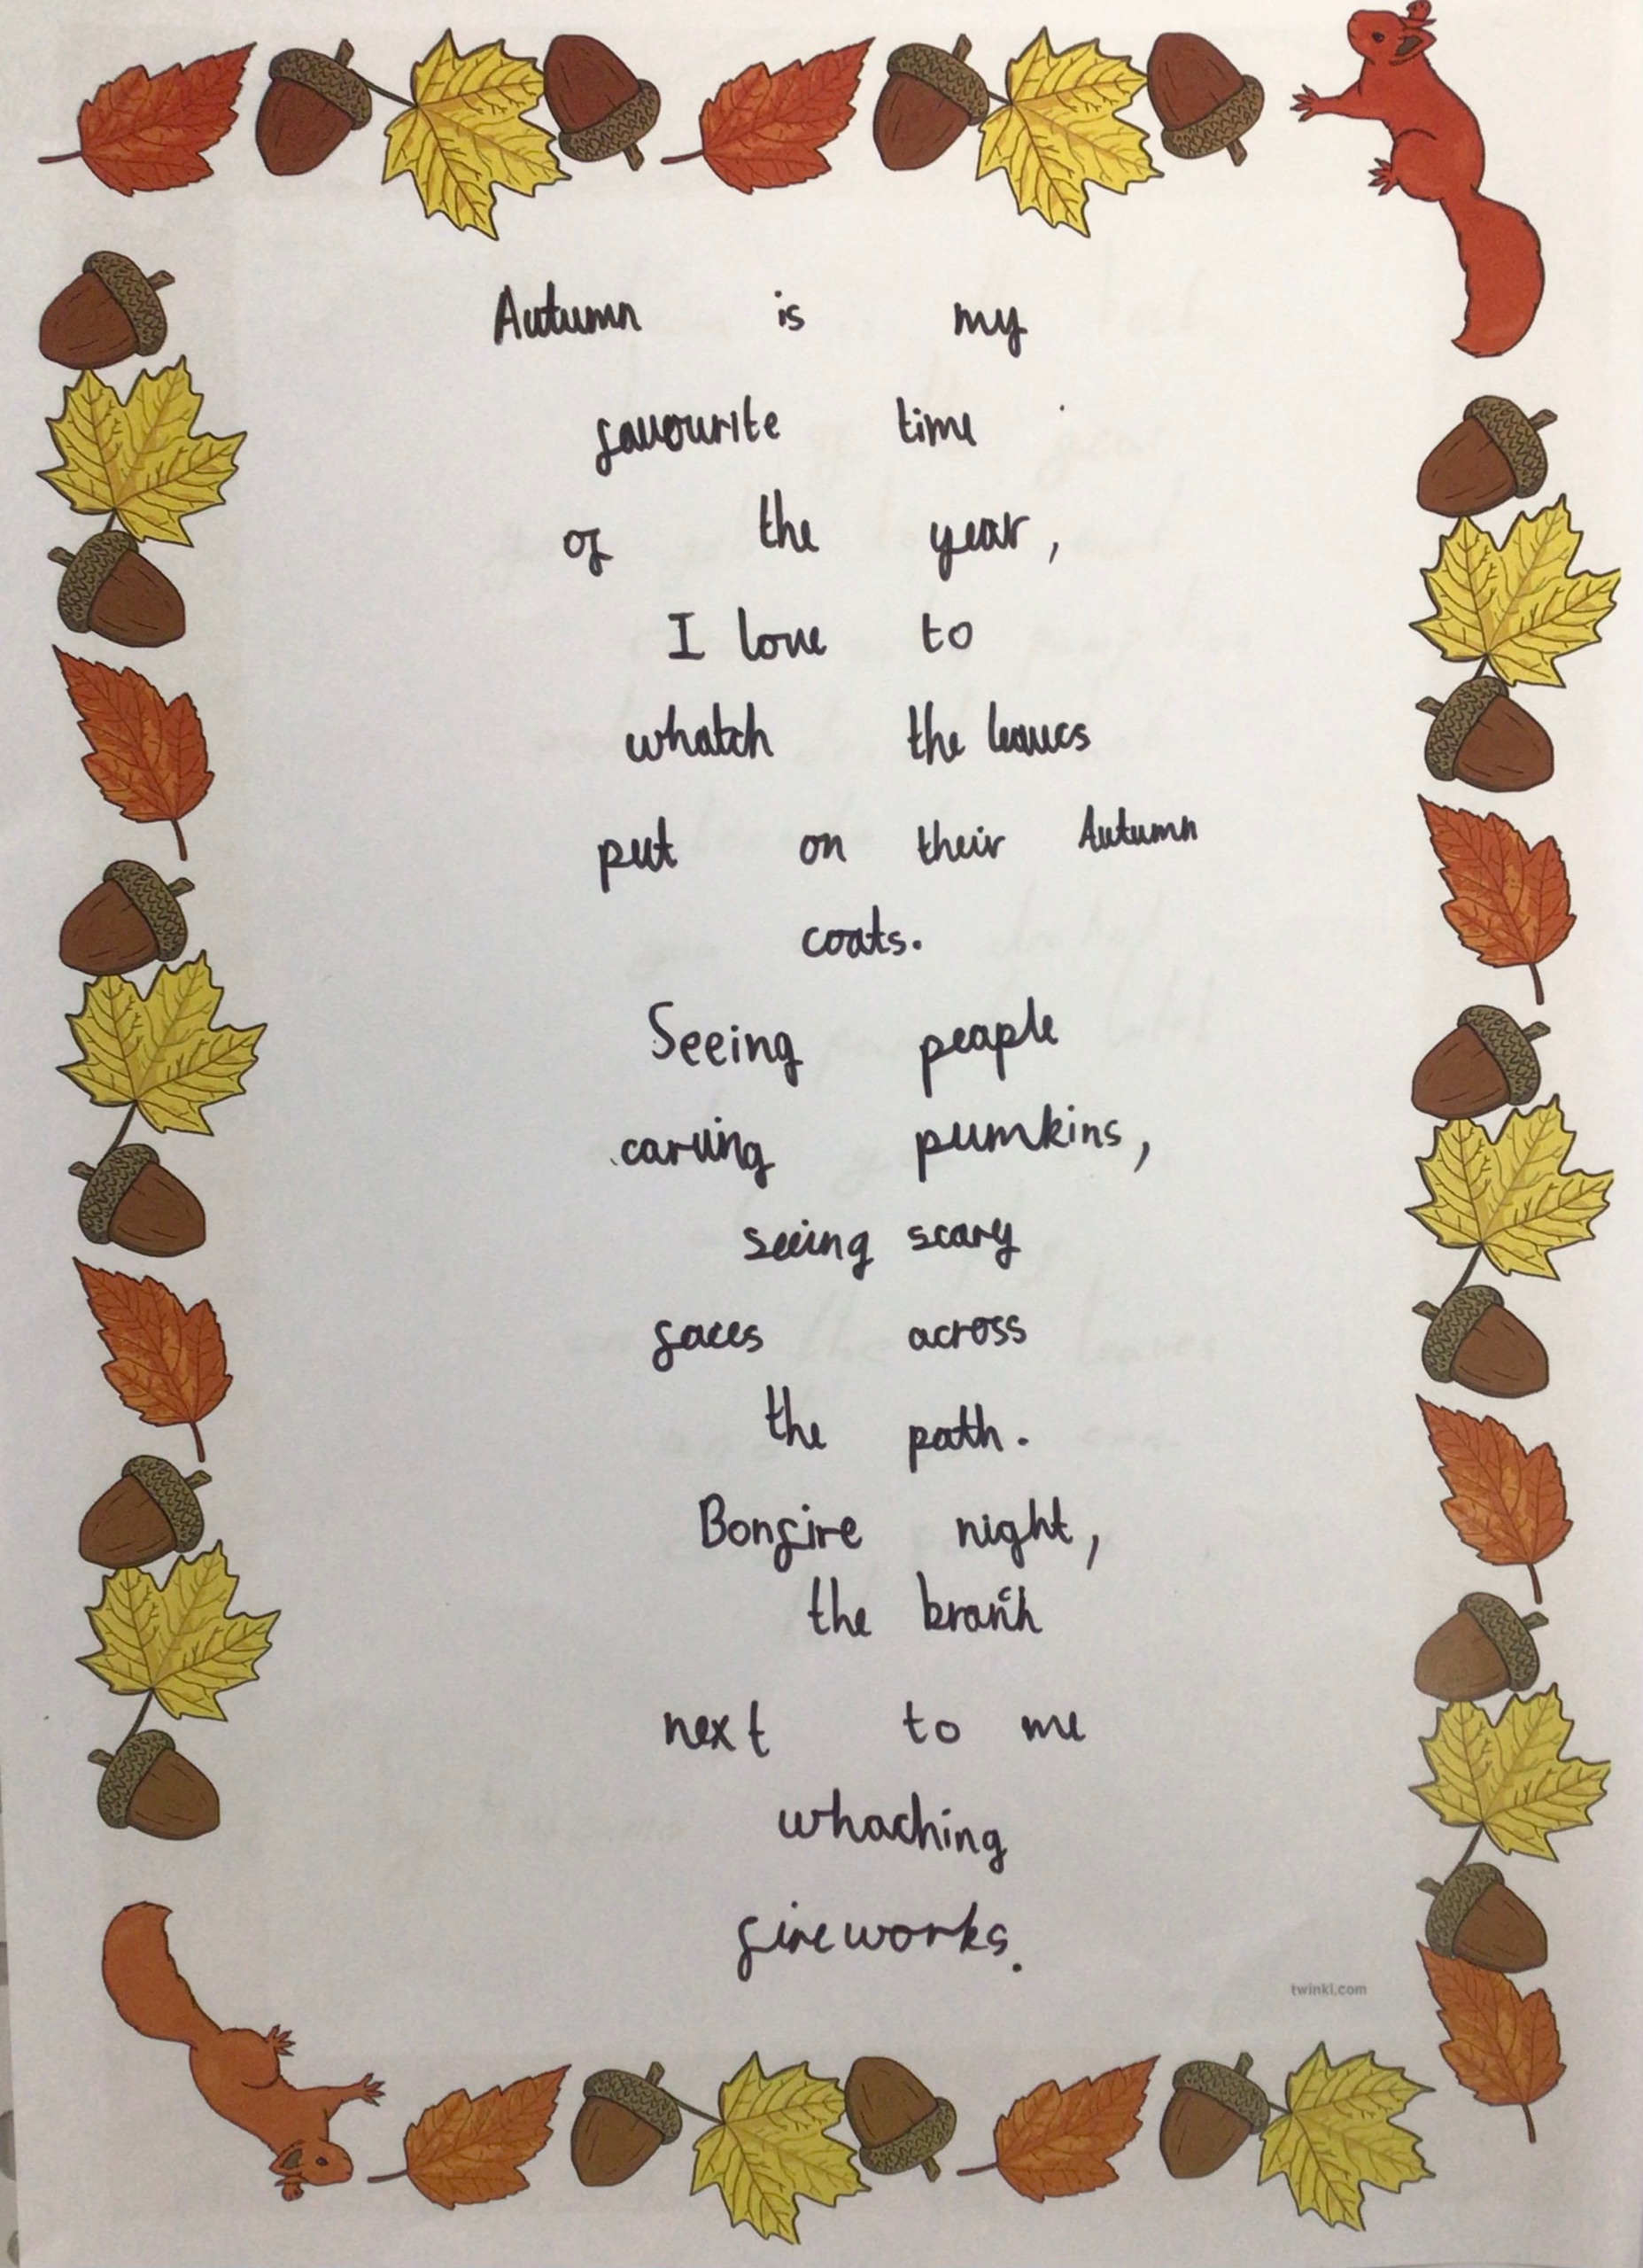 Autumn is my
favourite time
of the year,
I love to
whatch the leaves
put on their Autumn
coats.
Seeing peaple
carving pumkins,
seeing scary
faces across
the path.
Bonfire night,
the branch
next to me
whaching
fireworks.
twinkl.com